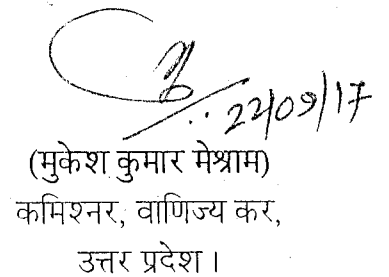 22/09/17
(मुकेश कुमार मेश्राम)
कमिश्नर, वाणिज्य कर,
उत्तर प्रदेश।